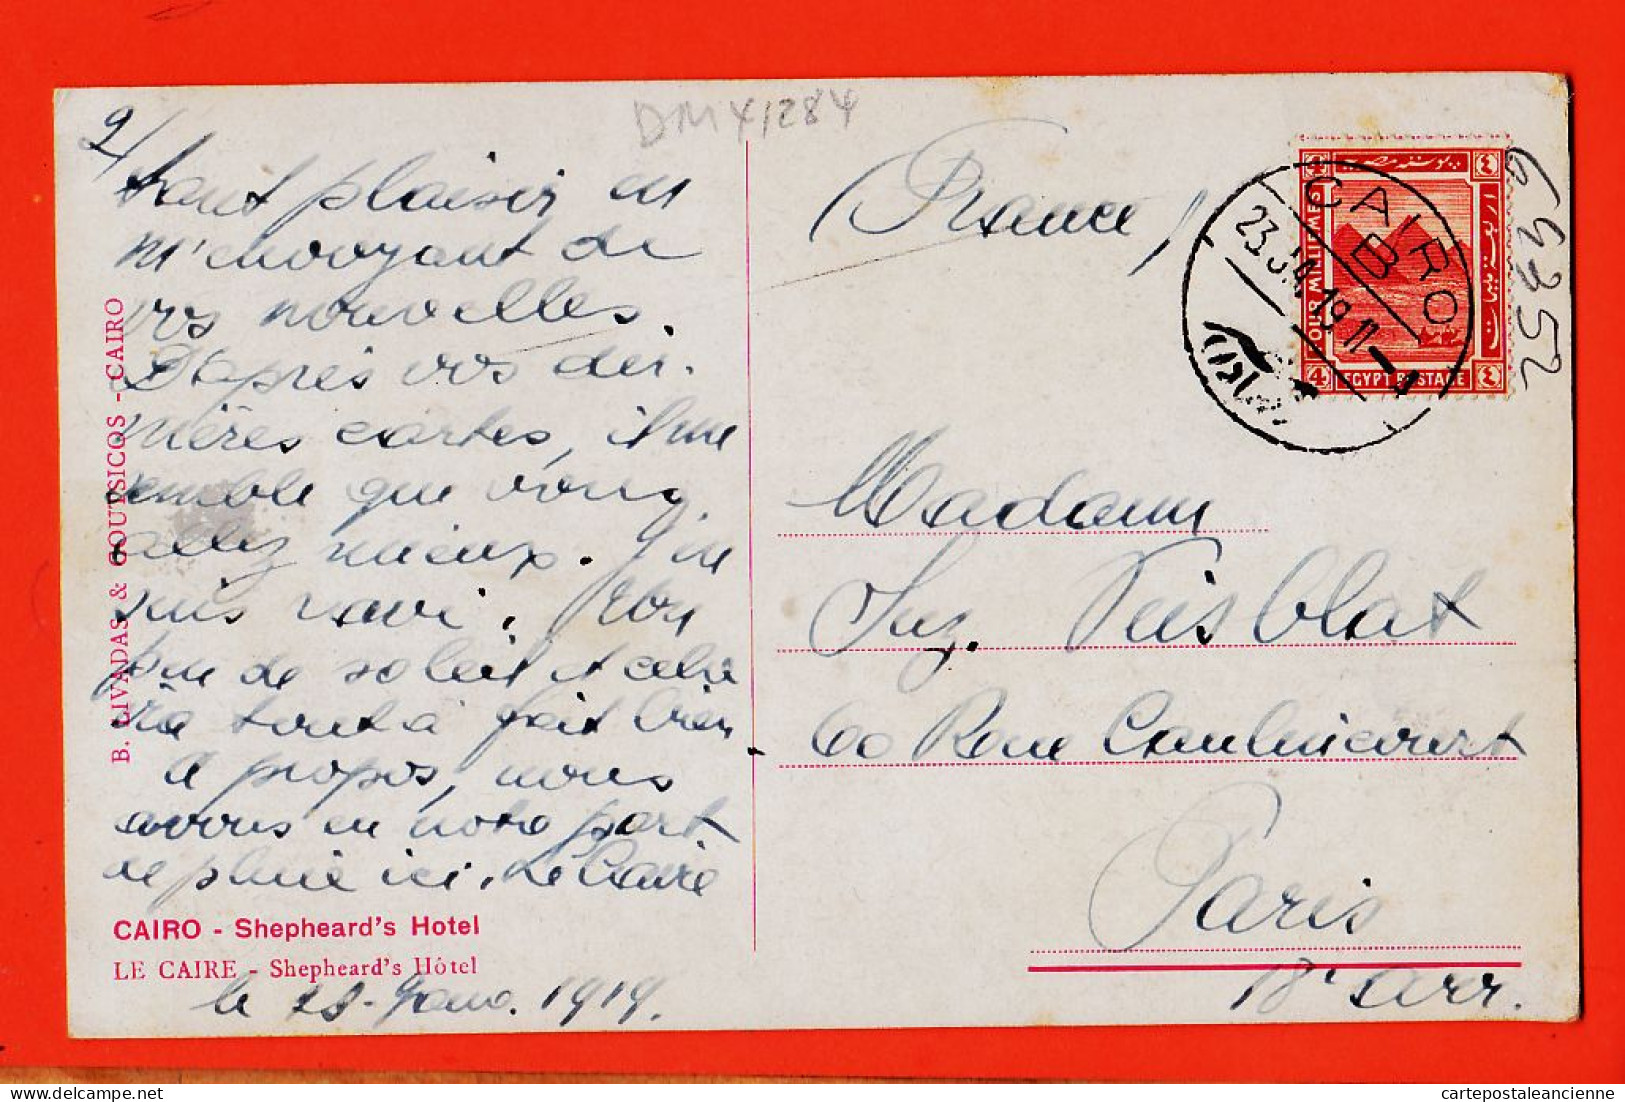 DM41284
2/
tant plaisir en
m'envoyant de
vos nouvelles.
D'après vos der-
nières cartes, il me
semble que vous
allez mieux. J'en
suis ravi. Un
peu de soleil et cela
ira tout à fait bien
A propos, nous
avons en notre part
de pluie ici. Le Caire
le 23 Janv. 1919.
B. LIVADAS & COUTSICOS - CAIRO
CAIRO - Shepheard's Hotel
LE CAIRE - Shepheard's Hôtel
(France)
CAIRO
B
23. JA. 19 11-
بوسته مصرية
EGYPT POSTAGE
4
٤
64352
Madame
Suz. Visblat
60 Rue Caulincourt
Paris
18e arr.
cartepostaleancienne